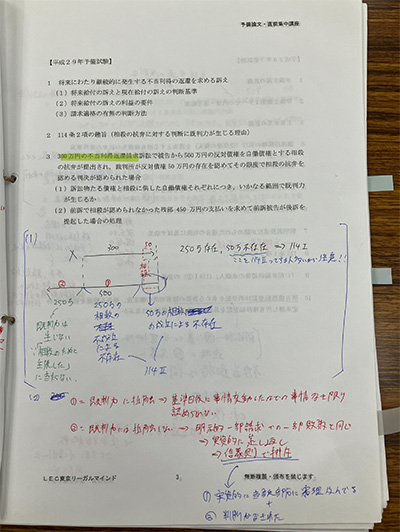 予備論文・直前集中講座
【平成29年予備試験】
1 将来にわたり継続的に発生する不当利得の返還を求める訴え
(1)将来給付の訴えと現在給付の訴えの判断基準
(2)将来給付の訴えの利益の要件
(3)請求適格の有無の判断方法
2 114条2項の趣旨(相殺の抗弁に対する判断に既判力が生じる理由)
3 300万円の不当利得返還請求訴訟で被告から500万円の反対債権を自働債権とする相殺
の抗弁が提出され、裁判所が反対債権50万円の存在を認めてその限度で相殺の抗弁を
認める判決が認められた場合
(1)訴訟物たる債権と相殺に供した自働債権それぞれにつき、いかなる範囲で既判力
が生じるか
(2)前訴で相殺が認められなかった残部450万円の支払いを求めて前訴被告が後訴を
提起した場合の処理
(1)
300 50
X
250万存在、50万不存在 ⇒ 114Ⅰ
ここを114Ⅱって
注意!!
② ①
250
250万の
相殺の
による
不存在
50万の相殺
による不存在
114Ⅱ
既判力は
生じない
「相殺のために
主張した」
に当たらない。
(2)
①= 既判力に
⇒ 基準時後に
事情なき限り
認められない
②= 既判力では
しない ⇒ 明示的一部請求での一部敗訴と同じ
⇒ 実質的に蒸し返し
⇒ 信義則で
① 実質的に
審理
+
② 判断が
LEC東京リーガルマインド
3
無断複製・頒布を禁じます